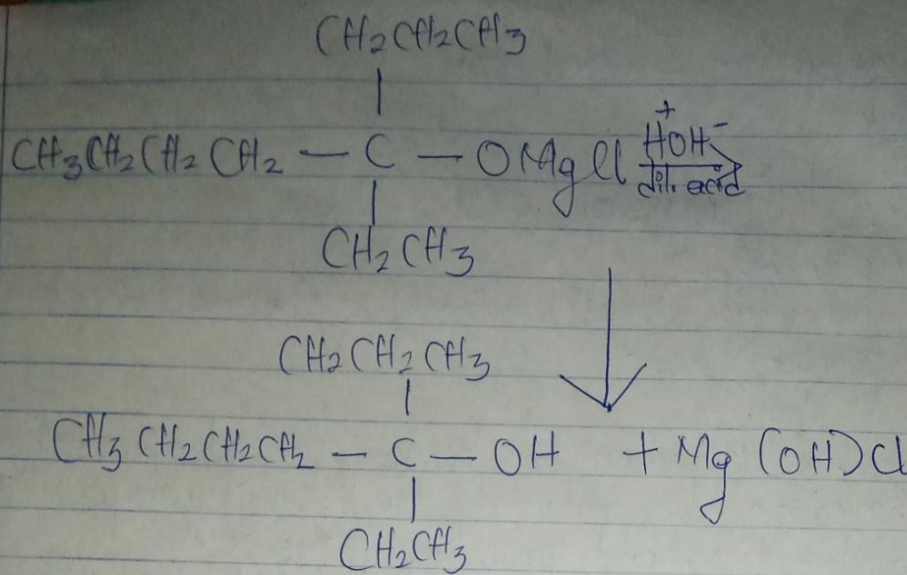 CH2CH2CH3
CH3CH2CH2CH2 — C — OMgCl H+OH- dil. acid
CH2CH3
CH2CH2CH3
CH3CH2CH2CH2 — C — OH + Mg(OH)Cl
CH2CH3